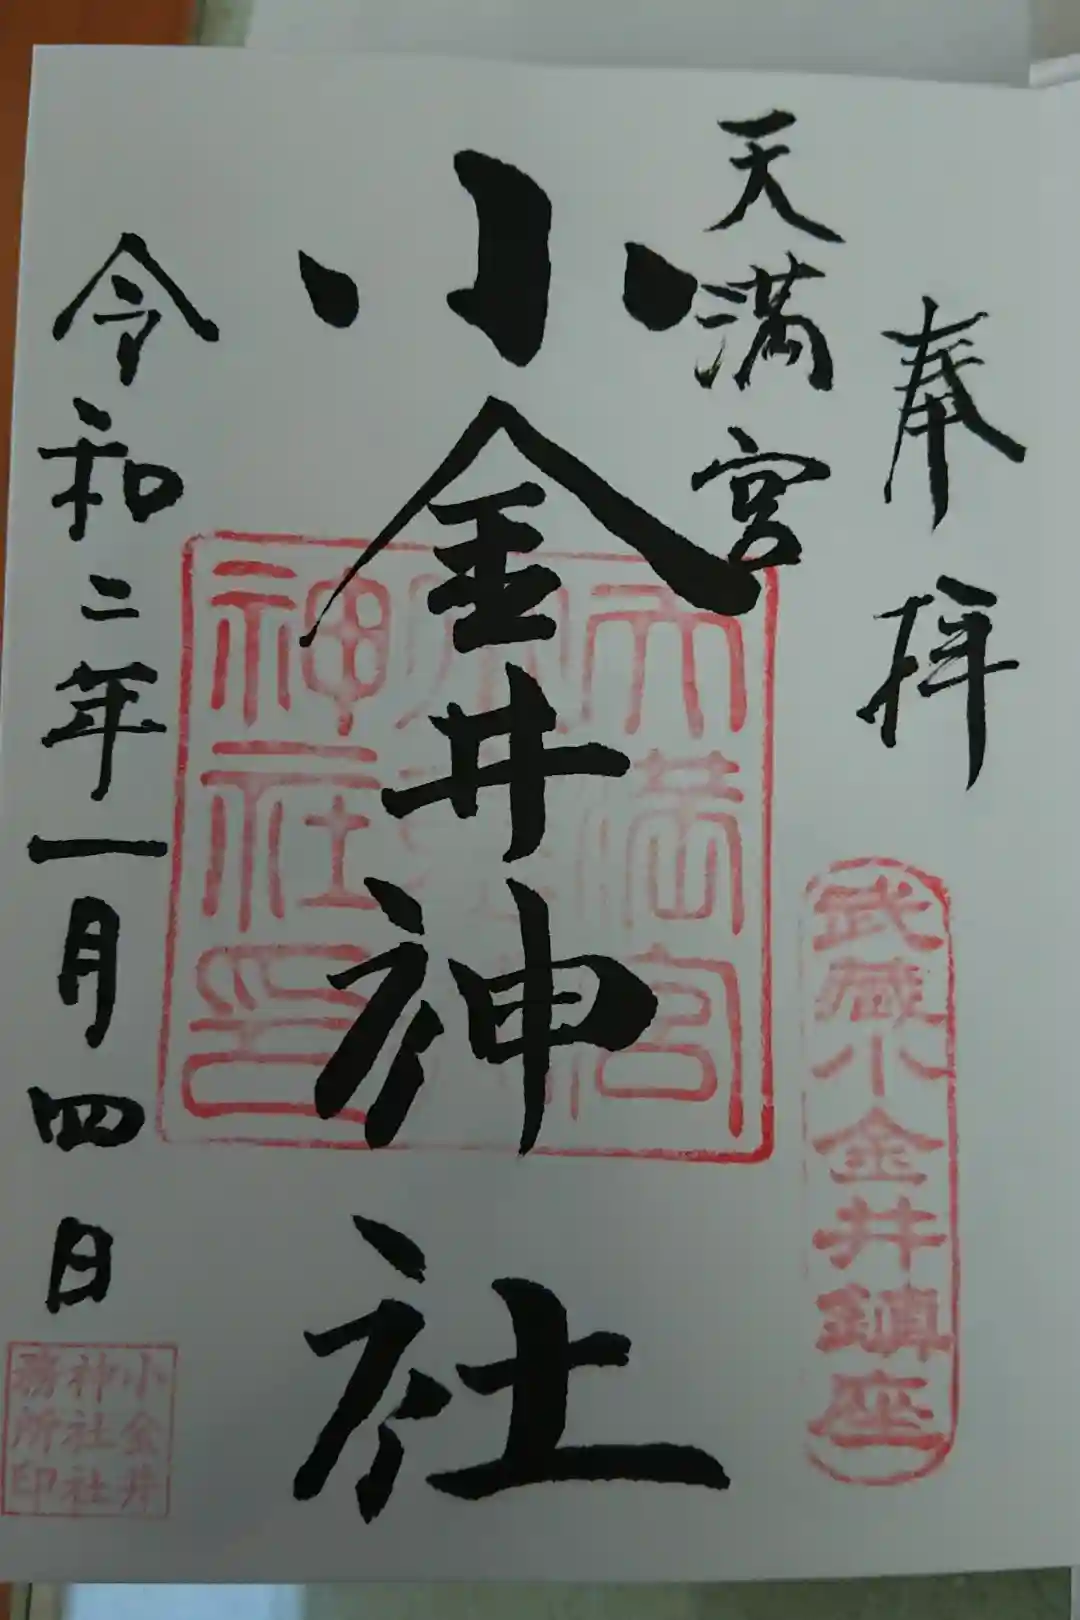 奉拝
武蔵小金井鎮座
天満宮
小金井神社
天満宮
神社印
令和二年一月四日
小金井
神社社
務所印